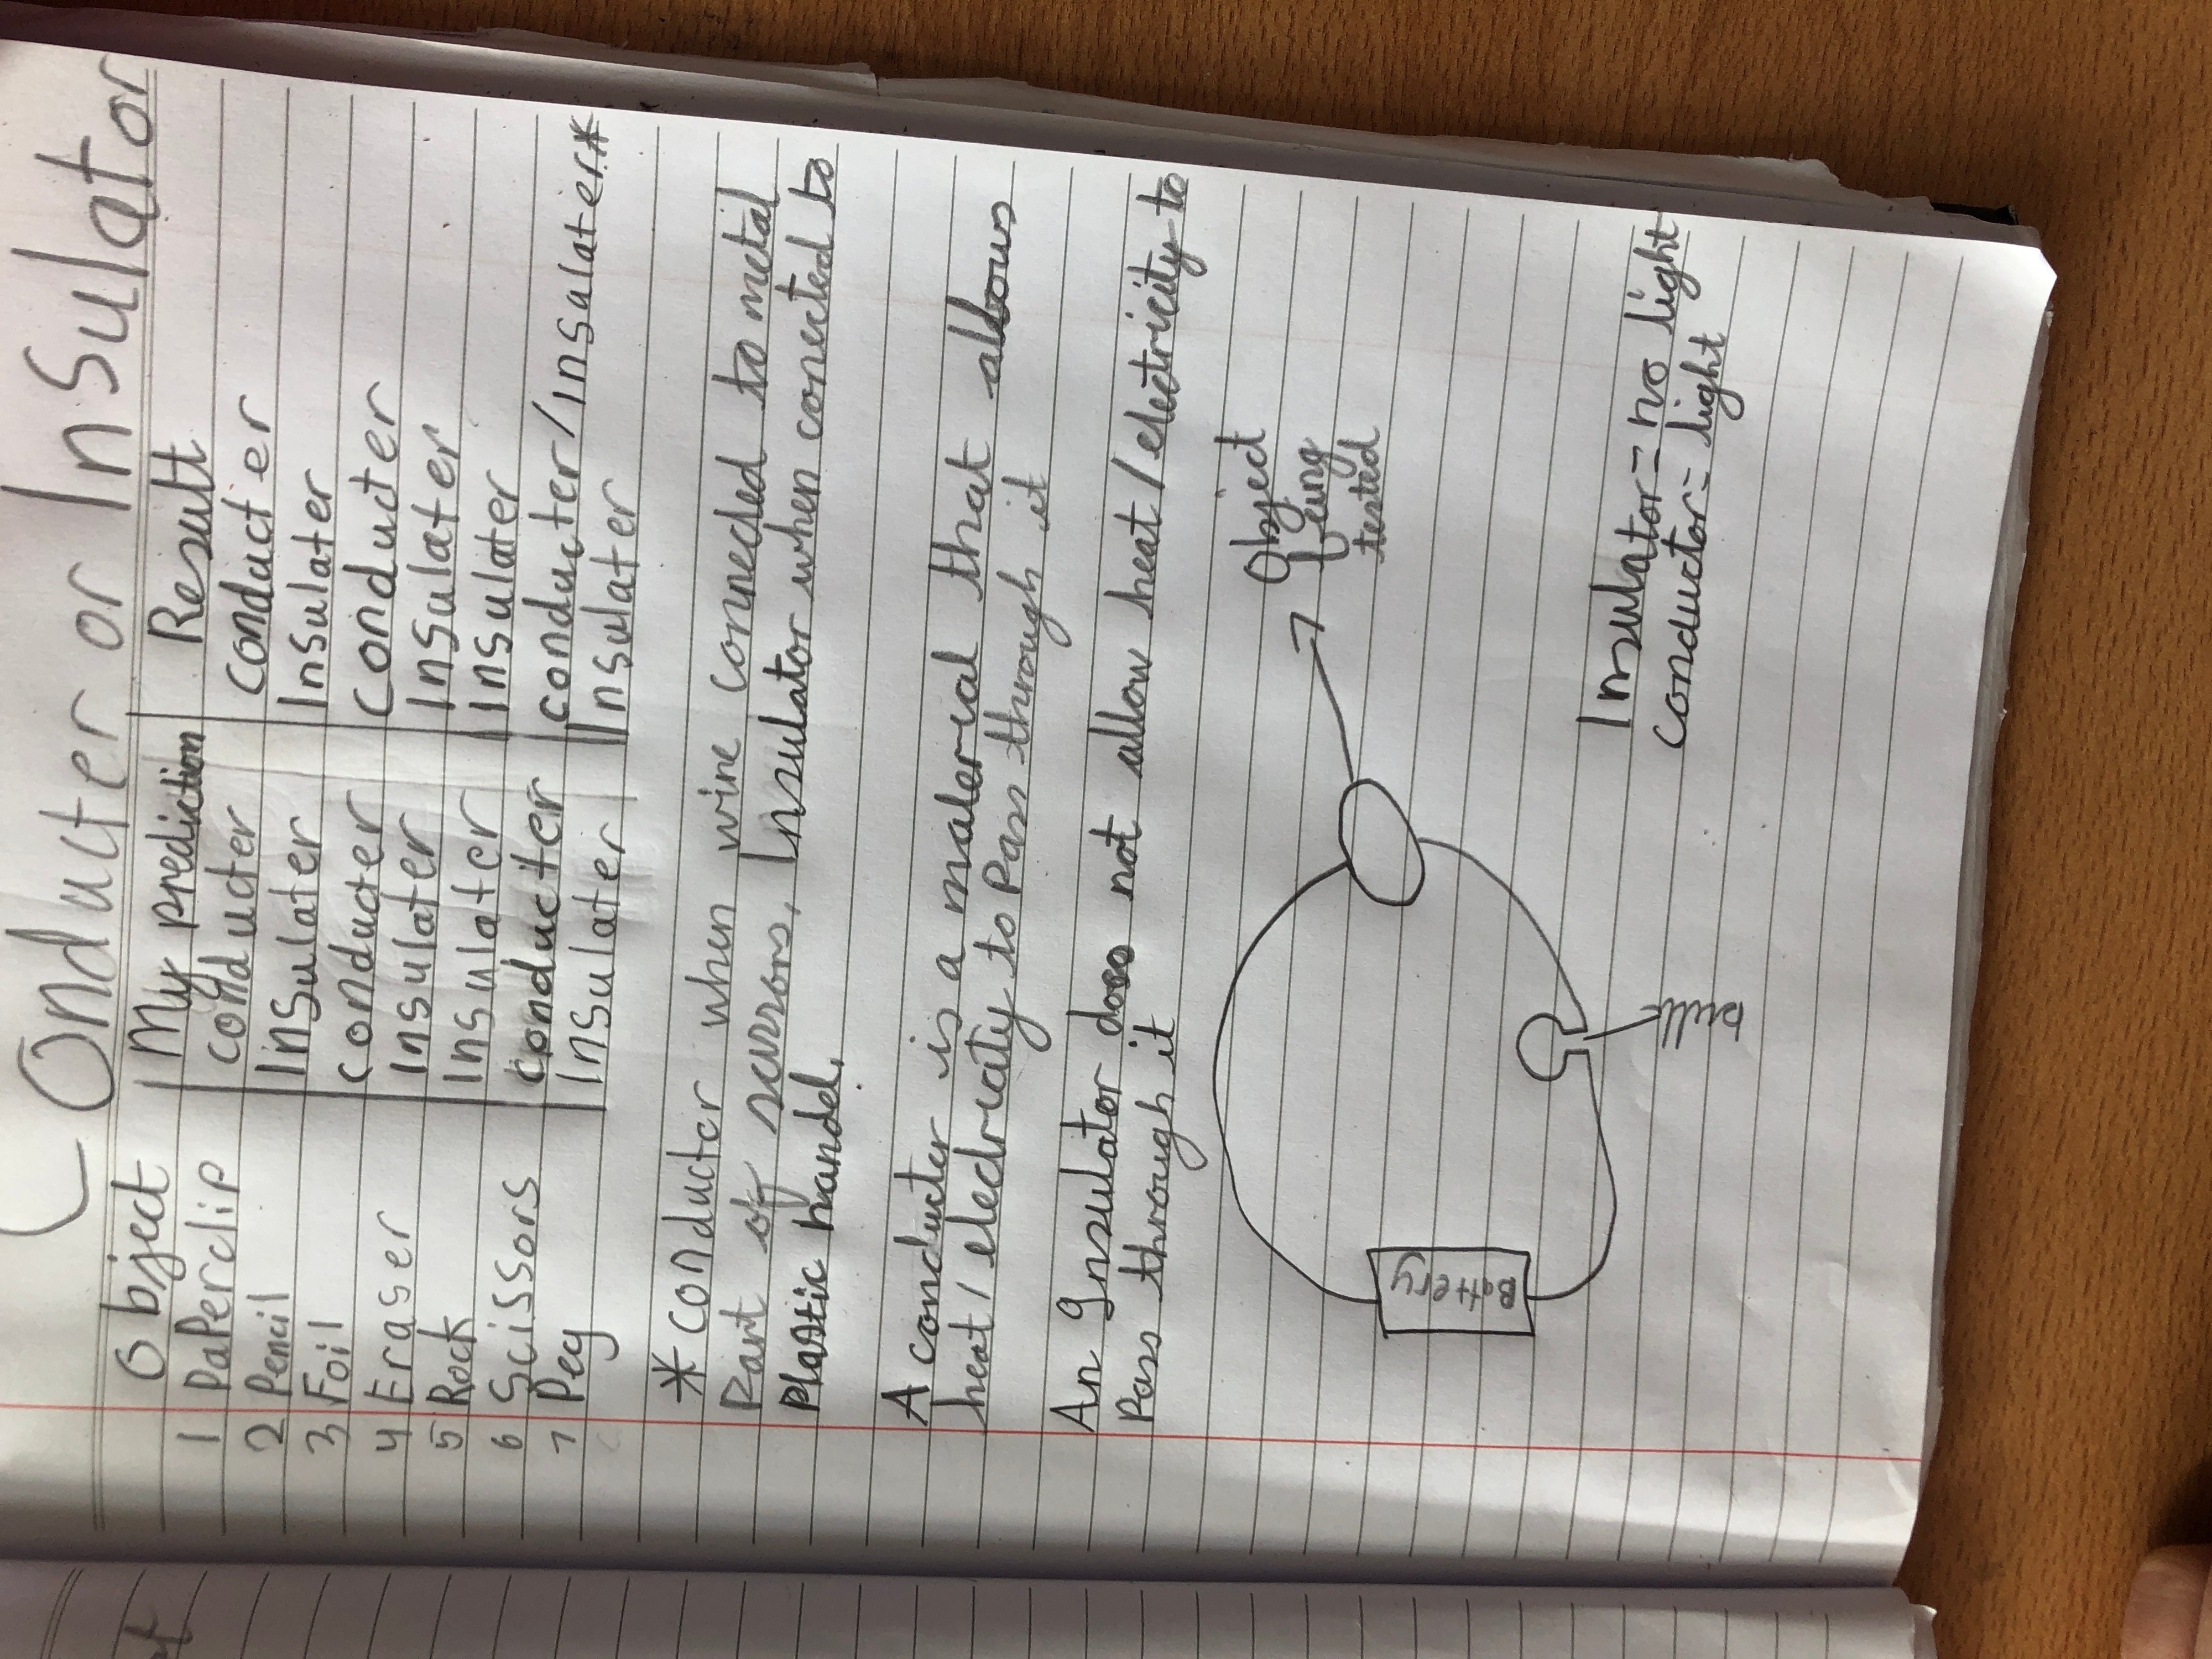 Conducter or Insulator
Object My prediction Result
1 Paperclip conducter conducter
2 Pencil Insulater Insulater
3 Foil conducter conducter
4 Eraser Insulater Insulater
5 Rock Insulater Insulater
6 Scissors conducter conducter/insulater*
7 Peg Insulater Insulater
* conductor when wire connected to metal
Part of scissors, Insulator when conected to
Plastic handel.
A conducter is a material that allows
heat/electricity to Pass through it
An Insulator does not allow heat/electricity to
Pass through it
Object
being
tested
Battery
Bulb
Insulator = no light
conductor = light